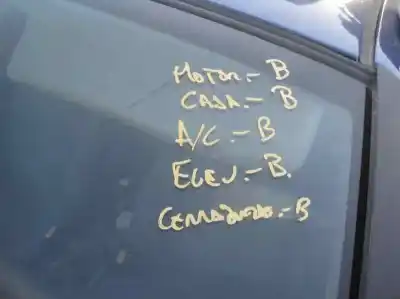 MOTOR.- B
CAJA.- B
A/C.- B
ELEV.- B.
CERRADURA.- B